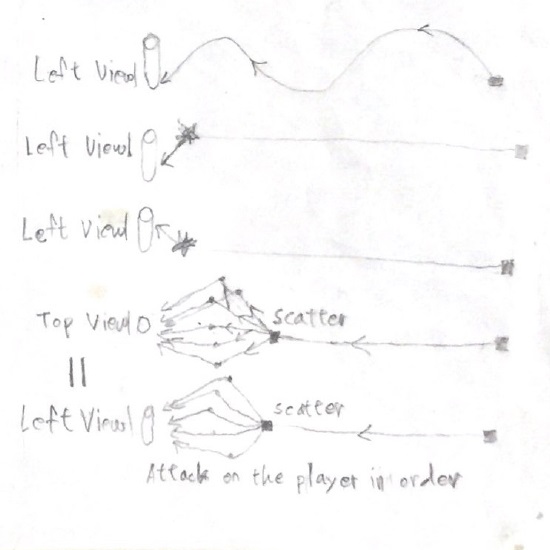 Left View
Left View
Left View
Top View
scatter
Left View
scatter
Attack on the player in order